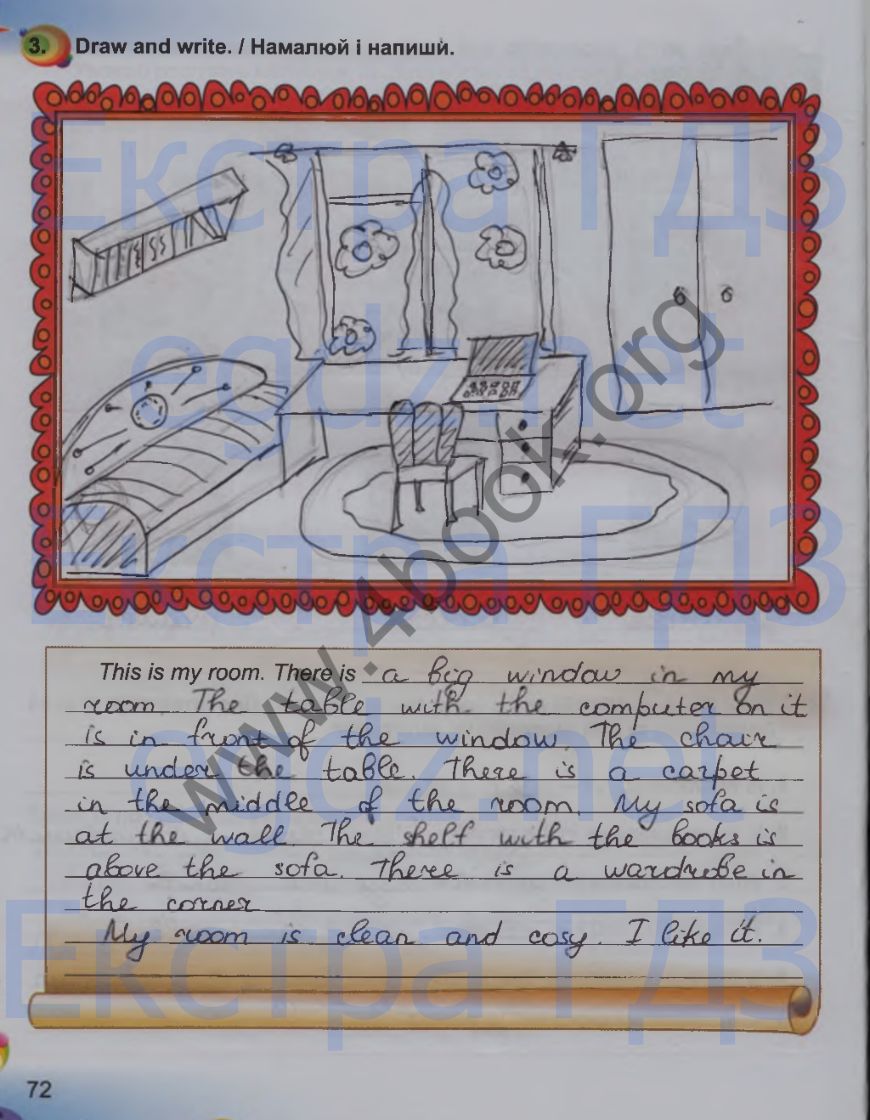 3. Draw and write. / Намалюй і напиши.
Екстра ГДЗ
egdz.net
www.4book.org
Екстра ГДЗ
This is my room. There is a big window in my
room. The table with the computer on it
is in front of the window. The chair
is under the table. There is a carpet
in the middle of the room. My sofa is
at the wall. The shelf with the books is
above the sofa. There is a wardrobe in
the corner
My room is clean and cosy. I like it.
egdz.net
Екстра ГДЗ
72